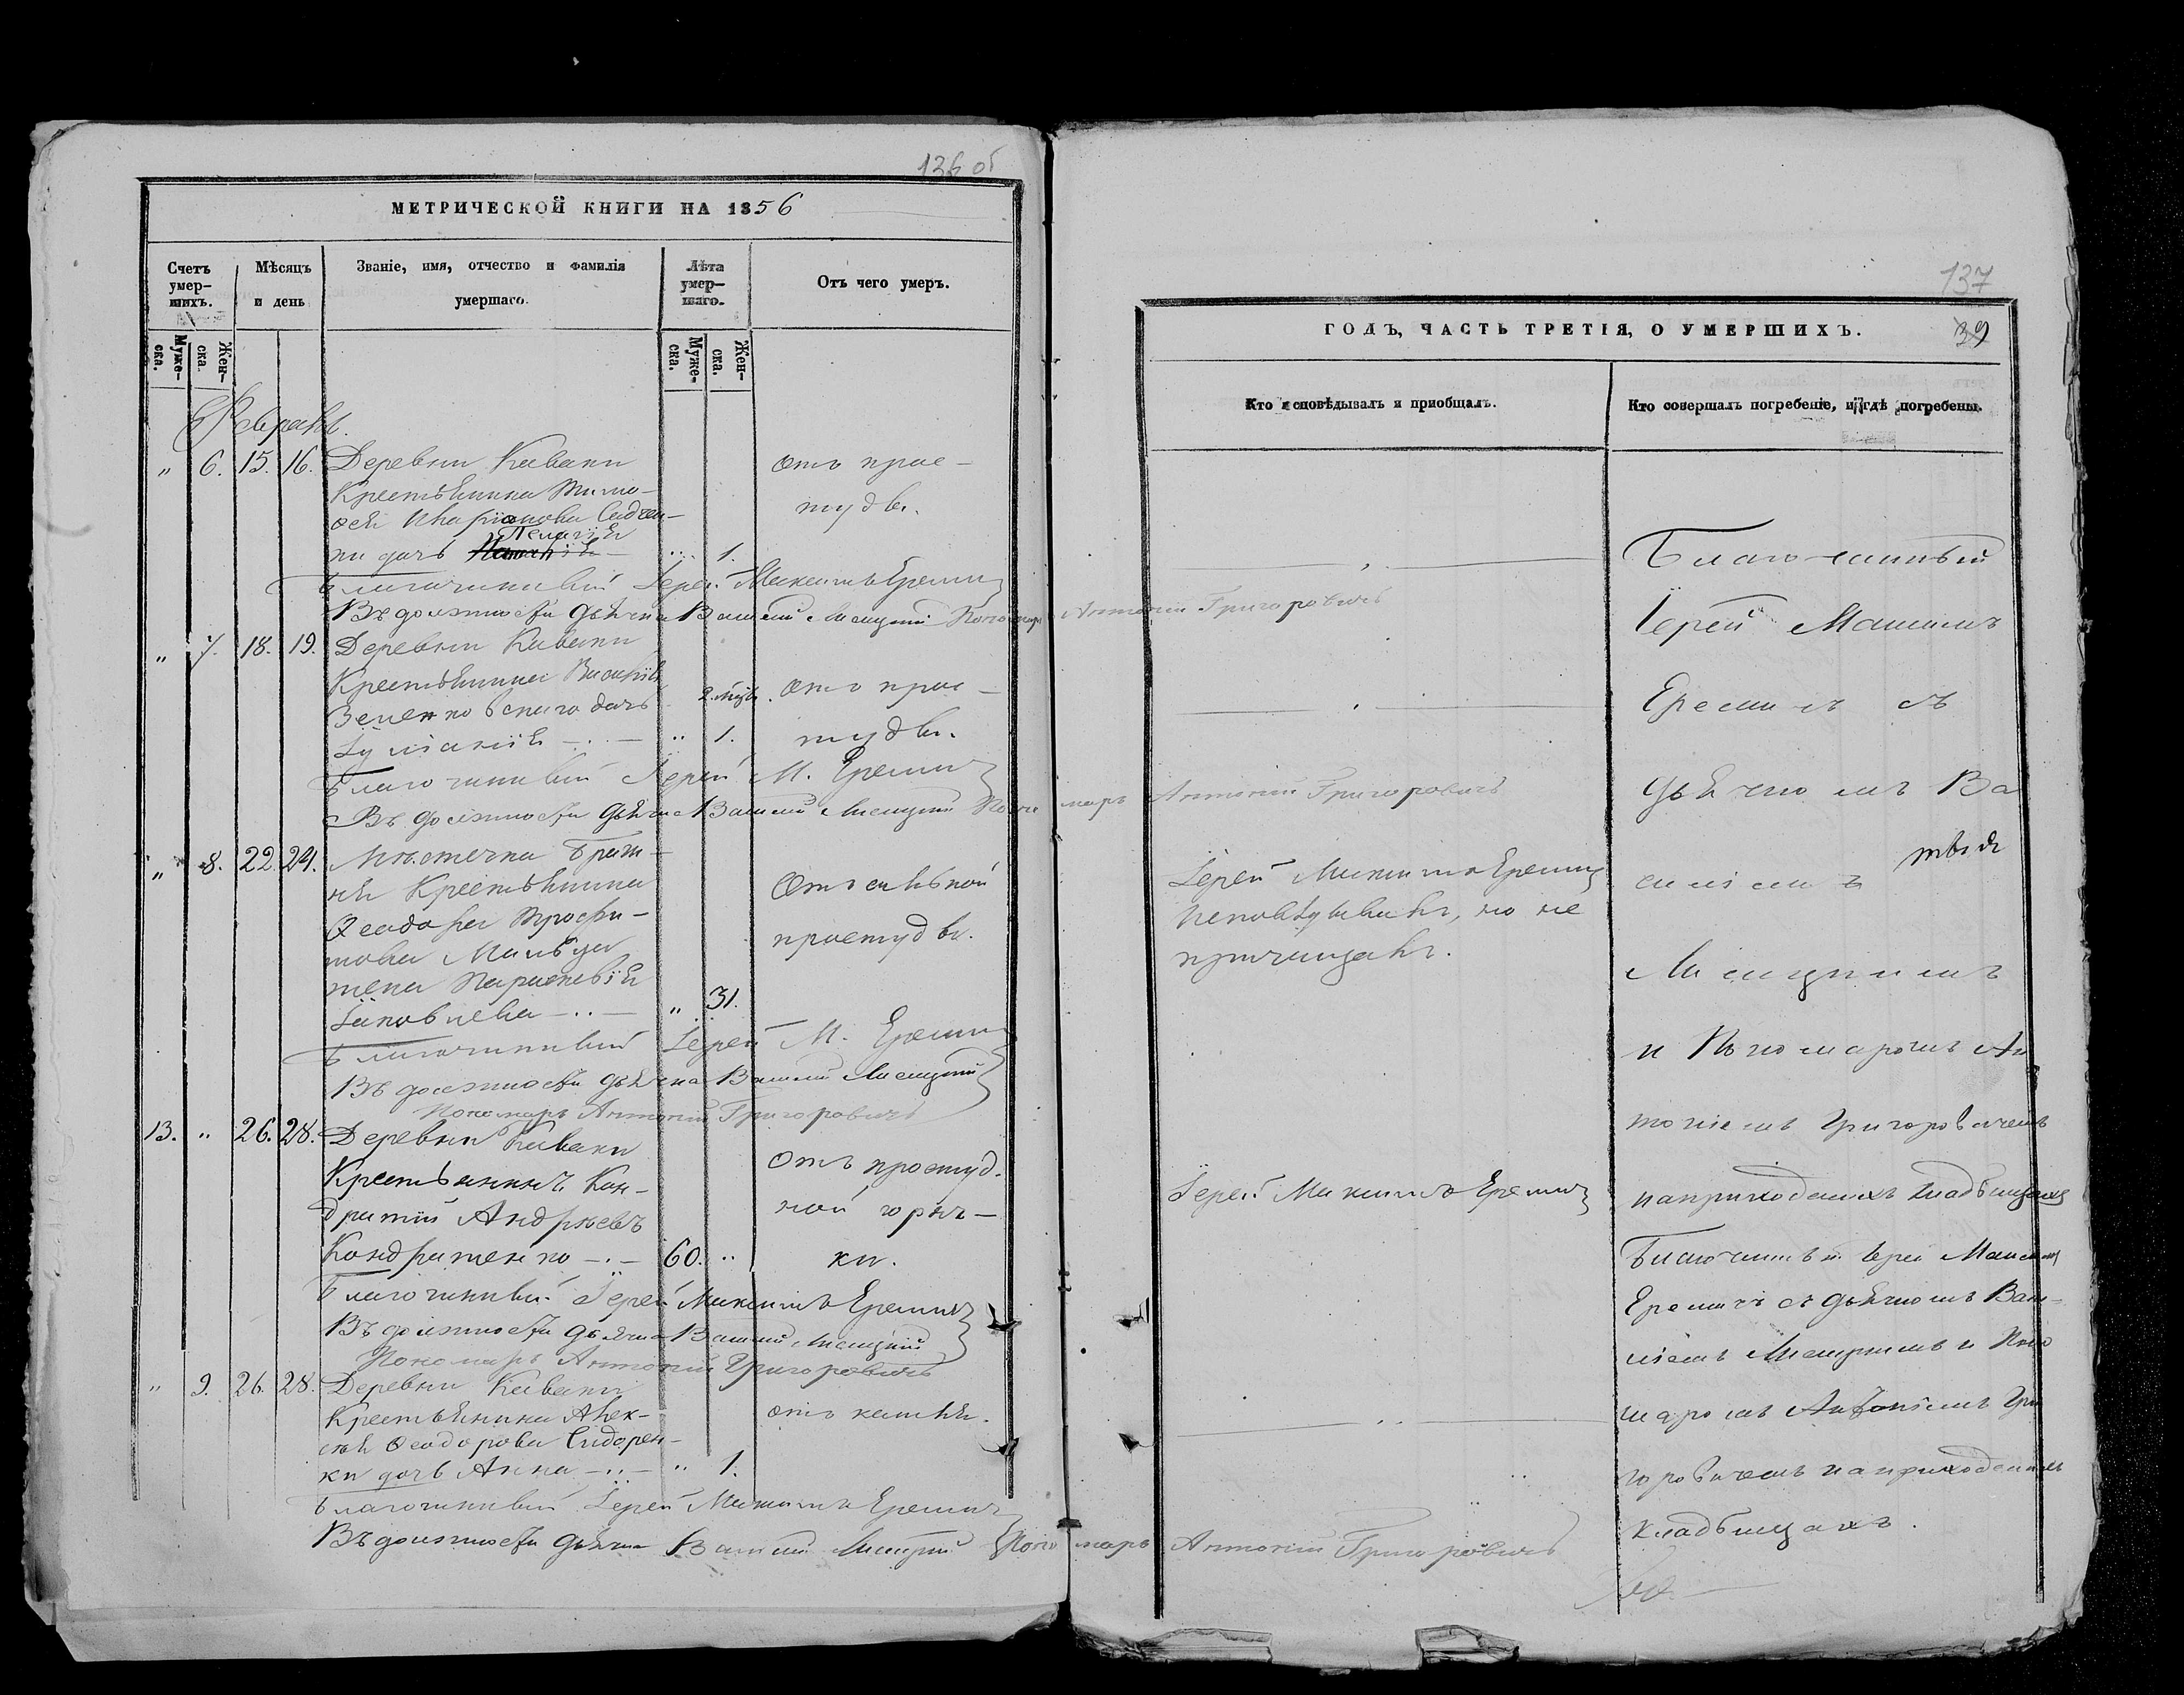 136 об
МЕТРИЧЕСКОЙ КНИГИ НА 1856
Счетъ умер-шихъ.
Мѣсяцъ и день
Званіе, имя, отчество и фамилія умершаго.
Лѣта умер-шаго.
Отъ чего умеръ.
Муже-ска.
Жен-ска.
Муже-ска.
Жен-ска.
Февраль.
" 6. 15. 16. Деревни Каваки
Крестьянина Тимо-
ѳея Иларіонова
дочь Пелагія " 1.
отъ прос-
туды.
Благочинный Іерей Максимъ Еремичъ
Въ должности дьячка Василій Лисицкій Пономарь Антоній Григоровичъ
" 7. 18. 19. Деревни Каваки
Крестьянина Василія
Зеленковскаго дочь
Іуліанія " 1.
отъ прос-
туды.
Благочинный Іерей М. Еремичъ
Въ должности дьячка Василій Лисицкій Пономарь Антоній Григоровичъ
" 8. 22. 24. Мѣстечка
Крестьянина
Ѳеодора Трофи-
мова
жена Параскевія
Іаковлева " 31.
Отъ сильной
простуды.
Благочинный Іерей М. Еремичъ
Въ должности дьячка Василій Лисицкій
Пономарь Антоній Григоровичъ
13. " 26. 28. Деревни Каваки
Крестьянинъ Кон-
дратій Андреевъ
Кондратенко 60. "
Отъ простуд-
ной горяч-
ки.
Благочинный Іерей Максимъ Еремичъ
Въ должности дьячка Василій Лисицкій
Пономарь Антоній Григоровичъ
" 9. 26. 28. Деревни Каваки
Крестьянина Алек-
сѣя Ѳеодорова Сидорен-
ки дочь Анна " 1.
отъ кашля.
Благочинный Іерей Максимъ Еремичъ
Въ должности дьячка Василій Лисицкій Пономарь Антоній Григоровичъ
137
ГОДЪ, ЧАСТЬ ТРЕТІЯ, О УМЕРШИХЪ.
39
Кто исповѣдывалъ и пріобщалъ.
Кто совершалъ погребеніе, и гдѣ погребены.
Іерей Максимъ Еремичъ
исповѣдывалъ, но не
причащалъ.
Іерей Максимъ Еремичъ
Благочинный
Іерей Максимъ
Еремичъ съ
дьячкомъ Ва
силіемъ
Лисицкимъ
и Пономаремъ Ан
тоніемъ Григоровичемъ
на приходскихъ кладбищахъ
Благочинный Іерей Максимъ
Еремичъ съ дьячкомъ Васи-
ліемъ Лисицкимъ и Поно
маремъ Антоніемъ Гри
горовичемъ на приходскихъ
кладбищахъ.